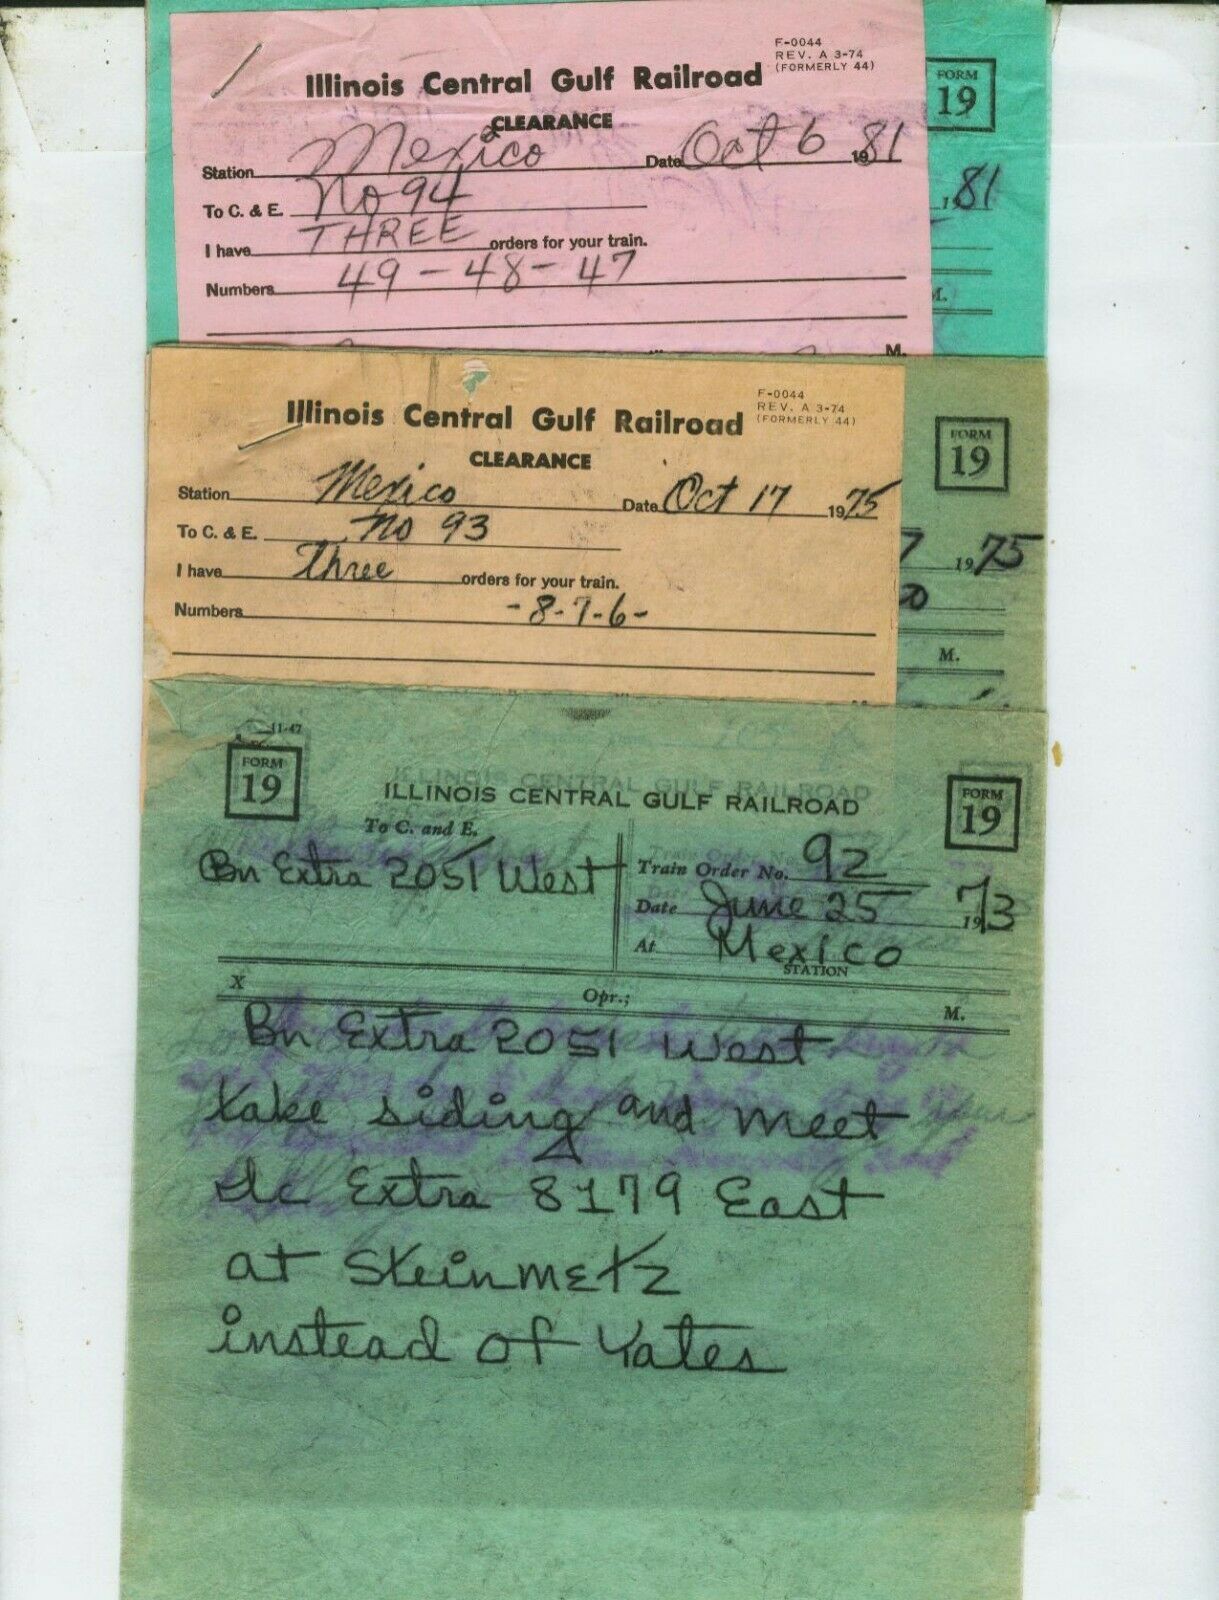 F-0044
REV. A 3-74
(FORMERLY 44)
Illinois Central Gulf Railroad
CLEARANCE
Station Mexico Date Oct 6 1981
To C. & E. No 94
I have THREE orders for your train.
Numbers 49-48-47
M.
FORM
19
1981
M.
F-0044
REV. A 3-74
(FORMERLY 44)
Illinois Central Gulf Railroad
CLEARANCE
Station Mexico Date Oct 17 1975
To C. & E. No 93
I have Three orders for your train.
Numbers -8-7-6-
FORM
19
7 1975
M.
11-47
FORM
19
ILLINOIS CENTRAL GULF RAILROAD
FORM
19
To C. and E.
Bn Extra 2051 West
Train Order No. 92
Date June 25 1973
At Mexico
STATION
X Opr.; M.
Bn Extra 2051 West
take siding and meet
Ic Extra 8179 East
at Steinmetz
instead of Yates